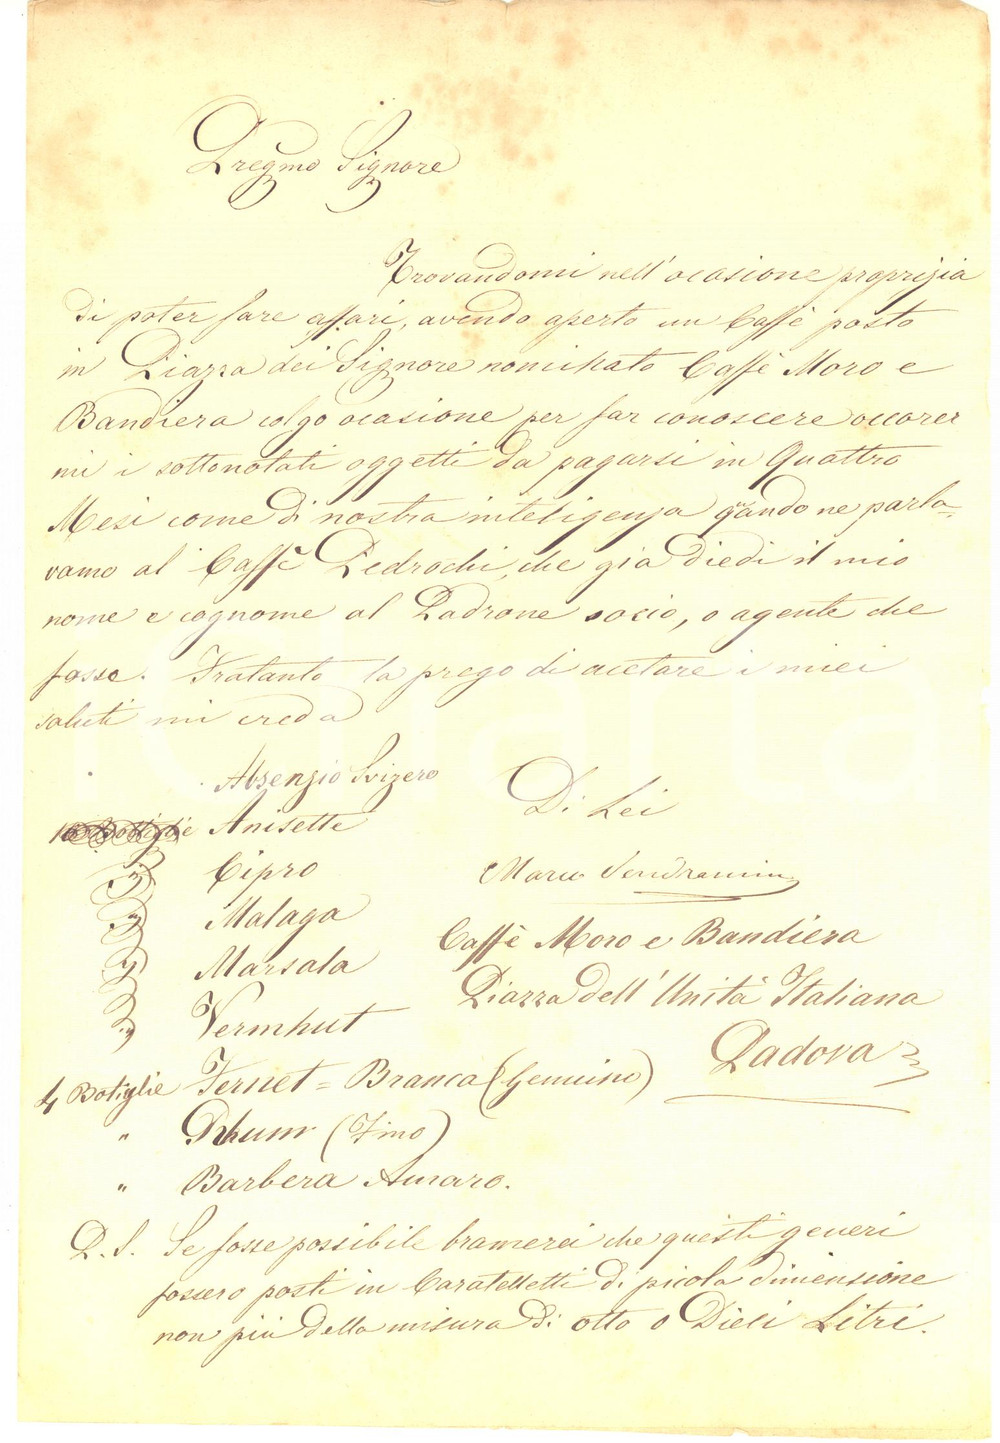 Pregmo Signore
Trovandomi nell'ocasione proprizia
di poter fare affari, avendo aperto un Caffè posto
in Piazza dei Signore nominato Caffè Moro e
Bandiera colgo ocasione per far conoscere occorer
mi i sottonotati oggetti da pagarsi in Quattro
Mesi come di nostra inteligenza quando ne parla=
vamo al Caffè Pedrochi, che già diedi il mio
nome e cognome al Padrone socio, o agente che
fosse. Tratanto la prego di acetare i miei
saluti mi creda
Absenzio Svizero
Anisette
Cipro
Malaga
Marsala
Vermhut
4 Botiglie Fernet = Branca (Genuino)
" Rhum (Fino)
" Barbera Amaro.
Di Lei
Marco Vendramin
Caffè Moro e Bandiera
Piazza dell'Unità Italiana
Padova
P.S. Se fosse possibile bramerei che questi generi
fossero posti in Caratelletti di picola dimensione
non più della misura di otto o Dieci Litri.